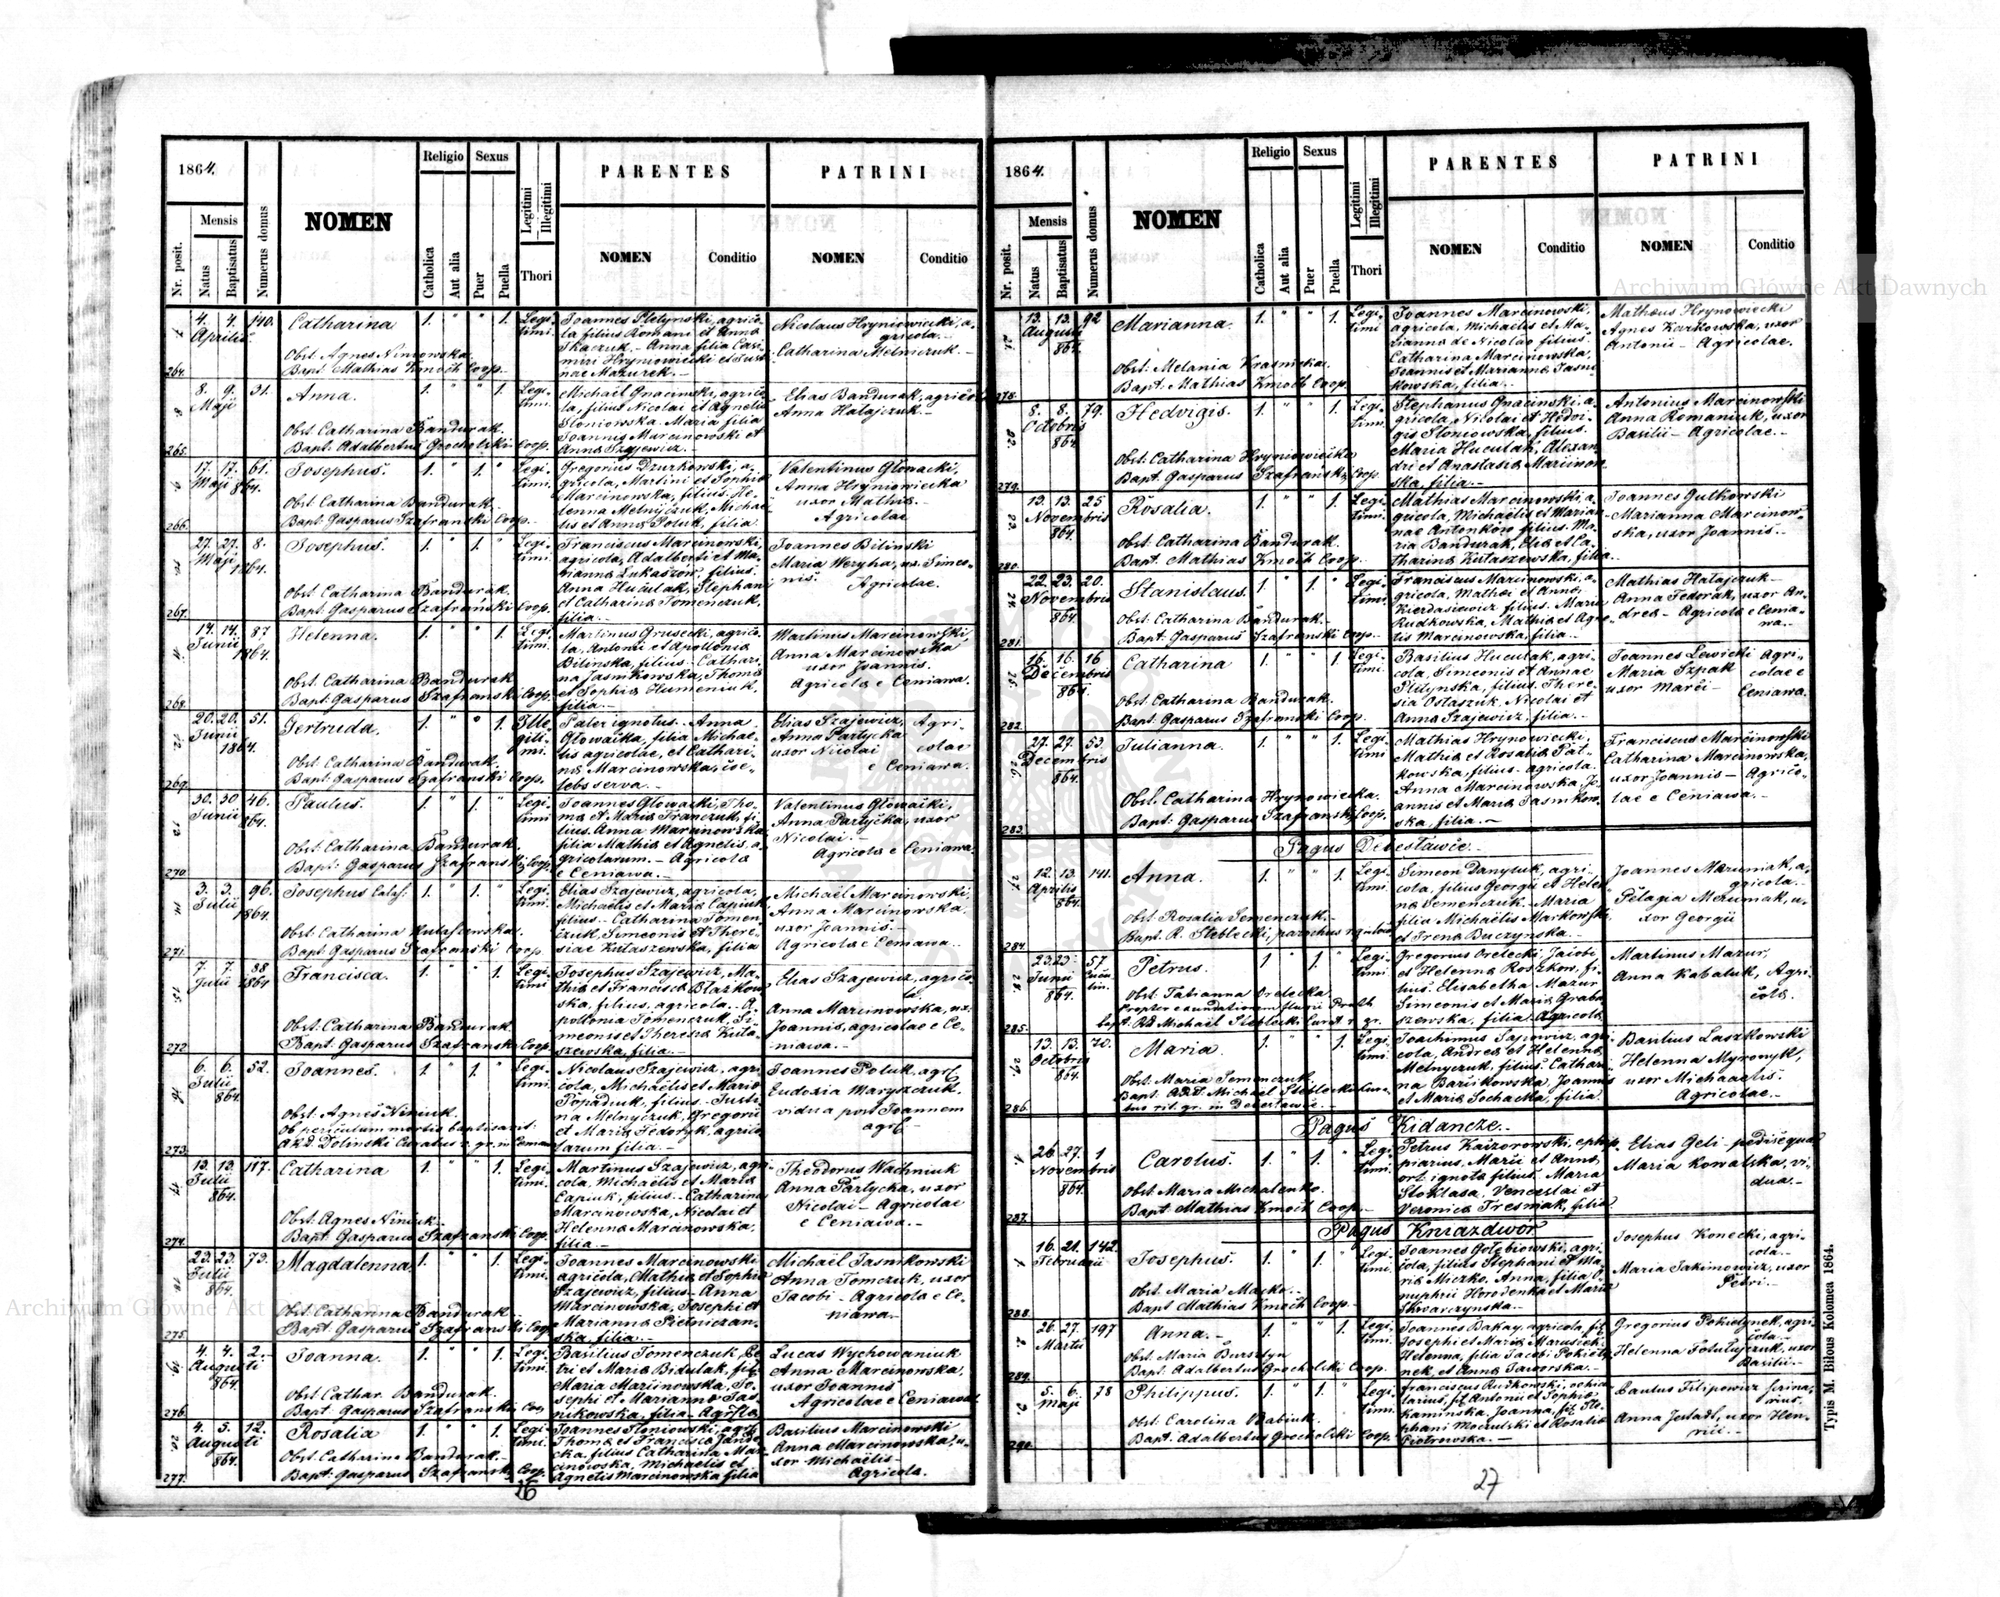 1864.
Nr. posit.
Mensis
Natus
Baptisatus
Numerus domus
NOMEN
Religio
Catholica
Aut alia
Sexus
Puer
Puella
Legitimi
Illegitimi
Thori
PARENTES
NOMEN
Conditio
PATRINI
NOMEN
Conditio
7 264. 4. Aprilis 4. 140. Catharina 1. " " 1. Legitimi
Obst. Agnes Niniowska.
Bapt. Mathias Kmoch Coop.
Joannes Pletynski, agrico-
la filius Romani et Anna
Tkaczuk – Anna filia Casi-
miri Hryniowiecki et Justi-
nae Mazurek. –
Nicolaus Hryniowiecki, a-
gricola. –
Catharina Melniczuk. –
8 265. 8. Maji 9. 31. Anna. 1. " " 1. Legi-
timi.
Obst. Catharina Bandurak.
Bapt. Adalbertus Grocholski Coop.
Michaël Gnacinski, agrico-
la, filius Nicolai et Agnetis
Sloniowska. Maria filia
Joannis Marcinowski et
Anna Szajewicz. –
Elias Bandurak, agricola
Anna Hatajczuk. –
9. 266. 17. 17. Maji 864. 61. Josephus. 1. " 1. " Legi-
timi.
Obst. Catharina Bandurak.
Bapt. Gasparus Szafranski Coop.
Gregorius Dzurkowski, a-
gricola, Martini et Sophia
Marcinowska, filius. He-
lenna Melnyczuk, Michae-
lis et Anna Poluk, filia.
Valentinus Głowacki,
Anna Hryniowiecka
uxor Mathia. –
Agricolae
267. 27. 27. Maji 1864. 8. Josephus. 1. " 1. " Legi-
timi.
Obst. Catharina Bandurak.
Bapt. Gasparus Szafranski Coop.
Franciscus Marcinowski,
agricola, Adalberti et Ma-
rianna Lukaszow, filius.
Anna Huculak, Stephani
et Catharina Tomenczuk,
filia. –
Joannes Bilinski
Maria Weryha, ux. Simeo-
nis. Agricolae.
11. 268. 14. 14. Junii 1864. 87 Helenna. 1. " " 1. Legi-
timi.
Obst. Catharina Bandurak
Bapt. Gasparus Szafranski Coop.
Martinus Grusecki, agrico-
la, Antonii et Apollonia
Bilinska, filius – Cathari-
na Jasnikowska, Thoma
et Sophia Humeniuk,
filia. –
Martinus Marcinowski,
Anna Marcinowska
uxor Joannis.
Agricola e Ceniawa.
12. 269. 20. 20. Junii 1864. 51. Gertruda. 1. " " 1. Ille-
giti-
mi.
Obst. Catharina Bandurak.
Bapt. Gasparus Szafranski Coop.
Pater ignotus. Anna
Głowacka, filia Michae-
lis agricolae, et Cathari-
na Marcinowska, coe-
lebs serva. –
Elias Szajewicz, Agri-
Anna Partycka colae
uxor Nicolai e Ceniawa.
13. 270. 30. 30 Junii 864. 46. Paulus. 1. " 1. " Legi-
timi
Obst. Catharina Bandurak.
Bapt. Gasparus Szafranski Coop.
Joannes Głowacki, Tho-
ma et Maria Franczuk, fi-
lius. Anna Marcinowska
filia Mathia et Agnetis, a-
gricolarum. – Agricola
e Ceniawa. –
Valentinus Głowacki,
Anna Partycka, uxor
Nicolai. –
Agricola e Ceniawa
14. 271. 3. 3. Julii 1864. 96. Josephus Calas. 1. " 1. " Legi-
timi.
Obst. Catharina Kutaszewska.
Bapt. Gasparus Szafranski Coop.
Elias Szajewicz, agricola,
Michaelis et Maria Capiuk,
filius. – Catharina Tomen-
czuk, Simeonis et There-
siae Kutaszewska, filia
Michaël Marcinowski,
Anna Marcinowska
uxor Joannis. –
Agricola e Ceniawa.
15. 272. 7. 7. Julii 1864 88 Francisca. 1. " " 1. Legi-
timi
Obst. Catharina Bandurak.
Bapt. Gasparus Szafranski Coop.
Josephus Szajewicz, Ma-
thia et Francisca Błazkow-
ska, filius, agricola. A-
pollonia Tomenczuk, Si-
meonis et Theresa Kuta-
szewska, filia. –
Elias Szajewicz, agrico-
la.
Anna Marcinowska, ux.
Joannis, agricolae e Ce-
niawa. –
16. 273. 6. 6. Julii 864. 52. Joannes. 1. " 1. " Legi-
timi.
Obst. Agnes Niniuk.
Ob periculum mortis baptisavit
A.R.D. Dolinski Curatus r. gr. in Ceniawa
Nicolaus Szajewicz, agri-
cola, Michaëlis et Maria
Popadiuk, filius. – Justi-
na Melnyczuk, Gregorii
et Maria Fedoryk, agrico-
larum filia. –
Joannes Poluk, agr.
Eudoxia Maryszczuk,
vidua post Joannem
agr. –
17. 274. 13. 13. Julii 864. 117. Catharina 1. " " 1. Legi-
timi.
Obst. Agnes Niniuk. –
Bapt. Gasparus Szafranski Coop.
Martinus Szajewicz, agri-
cola, Michaëlis et Maria
Capiuk, filius. – Catharina
Marcinowska, Nicolai et
Helenna Marcinowska,
filia. –
Theodorus Wachniuk
Anna Partycka, uxor
Nicolai – Agricolae
e Ceniawa. –
18. 275. 23. 23. Julii 864. 73. Magdalenna. 1. " " 1. Legi-
timi.
Obst. Catharina Bandurak.
Bapt. Gasparus Szafranski Coop.
Joannes Marcinowski
agricola, Mathia et Sophia
Szajewicz, filius – Anna
Marcinowska, Josephi et
Marianna Pietniczan-
ska, filia. –
Michaël Jasnikowski
Anna Tomczuk, uxor
Jacobi – Agricola e Ce-
niawa. –
19. 276. 4. 4. Augusti 864. 2. – Joanna. 1. " " 1. Legi-
timi.
Obst. Cathar. Bandurak.
Bapt. Gasparus Szafranski Coop.
Basilius Tomenczuk, Pe-
tri et Maria Bidulak, fil.
Maria Marcinowska, Jo-
sephi et Marianna Jas-
nikowska, filia. Agricola
Lucas Wychowaniuk
Anna Marcinowska,
uxor Joannis
Agricolae e Ceniawa.
20. 277. 4. 5. Augusti 864. 12. Rosalia 1. " " 1. Legi-
timi.
Obst. Catharina Bandurak. –
Bapt. Gasparus Szafranski Coop.
Joannes Sloniowski, agr.
Thoma et Francisca
filius Catharina Mar-
cinowska, Michaelis et
Agnetis Marcinowska filia
Basilius Marcinowski
Anna Marcinowska, u-
xor Michaëlis
Agricola.
26
1864.
Nr. posit.
Mensis
Natus
Baptisatus
Numerus domus
NOMEN
Religio
Catholica
Aut alia
Sexus
Puer
Puella
Legitimi
Illegitimi
Thori
PARENTES
NOMEN
Conditio
PATRINI
NOMEN
Conditio
21. 278. 13. 13. Augusti 864. 92 Marianna. 1. " " 1. Legi-
timi
Obst. Melania Krasnicka.
Bapt. Mathias Kmoch Coop.
Joannes Marcinowski,
agricola, Michaëlis et Ma-
rianna de Nicolao filius.
Catharina Marcinowska,
Joannis et Marianna Jasni-
kowska, filia. –
Mathaus Hrynowiecki
Agnes Karkowska, uxor
Antonii – Agricolae.
22. 279. 8. 8. Octobris 864. 79. Hedvigis. 1. " " 1. Legi-
timi.
Obst. Catharina Hryniowiecka
Bapt. Gasparus Szafranski Coop.
Stephanus Gnacinski. a-
gricola, Nicolai et Hedvi-
gis Sloniowska, filius.
Maria Huculak, Alexan-
dri et Anastasia Marcinow-
ska, filia. –
Antonius Marcinowski
Anna Romaniuk, uxor
Basilii – Agricolae. –
23. 280. 13. 13. Novembris 864. 25 Rosalia. 1. " " 1. Legi-
timi.
Obst. Catharina Bandurak.
Bapt. Mathias Kmoch Coop.
Mathias Marcinowski, a-
gricola, Michaëlis et Marian-
nae Antonkow filius. Ma-
ria Bandurak, Elia et Ca-
tharina Kutaszewska, filia.
Joannes Gutkowski
Marianna Marcinow-
ska, uxor Joannis. –
24. 281. 22. 23. Novembris 864. 20. Stanislaus. 1. " 1. " Legi-
timi.
Obst. Catharina Bandurak.
Bapt. Gasparus Szafranski Coop.
Franciscus Marcinowski, a-
gricola, Mathia et Anna
Kierdasiewicz filius. Maria
Rudkowska, Mathia et Agne-
tis Marcinowska, filia. –
Mathias Hatajczuk –
Anna Fedorak, uxor An-
drea – Agricola e Cenia-
wa. –
25. 282. 16. 16. Decembris 864. 16 Catharina 1. " " 1. Legi-
timi.
Obst. Catharina Bandurak.
Bapt. Gasparus Szafranski Coop.
Basilius Huculak, agri-
cola, Simeonis et Annae
Pletynska, filius. There-
sia Ostaszuk, Nicolai et
Anna Szajewicz, filia. –
Joannes Lewicki Agri-
Maria Szpak colae e
uxor Marci – Ceniawa.
26. 283. 27. 27. Decembris 864. 53. Julianna. 1. " " 1. Legi-
timi
Obst. Catharina Hrynowiecka.
Bapt. Gasparus Szafranski Coop.
Mathias Hrynowiecki,
Mathia et Rosalia Pat-
kowska, filius. agricola.
Anna Marcinowska, Jo-
annis et Maria Jasnikow-
ska, filia. –
Franciscus Marcinowski
Catharina Marcinowska,
uxor Joannis – Agrico-
lae e Ceniawa. –
Pagus Debeslawce. –
27. 284. 12. 13. Aprilis 864. 141. Anna. 1. " " 1. Legi-
timi.
Obst. Rosalia Semenczuk. –
Bapt. R. Steblecki, parochus r. g. loci
Simeon Danyluk, agri-
cola, filius Georgii et Helen-
na Semenczuk – Maria
filia Michaëlis Markowski
et Irena Buczynska. –
Joannes Mazumiak, a-
gricola. –
Pelagia Mazumiak, u-
xor Georgii
28. 285. 23. 23. Junii 864. 57 Petrus. 1. " 1. " Legi-
timi.
Obst. Tatianna Orelecka.
Propter exundationem fluvii Pruth
bapt. RD Michaël Steblecki Curat. r. gr.
Gregorius Orelecki, Jacobi
et Helenna Roszkow, fi-
lius. Elisabetha Mazur
Simeonis et Maria Graba-
szewska, filia. Agricola
Martinus Mazur,
Anna Kabaluk, Agri-
cola.
29. 286. 13. 13. Octobris 864. 70. Maria. 1. " " 1. Legi-
timi.
Obst. Maria Semenczuk.
Bapt. A.R.D. Michaël Steblecki
rit. gr. in Debeslawce. –
Joachimus Sajowicz, agri-
cola, Andrea et Helenna
Melnyczuk, filius. Cathari-
na Barsikowska, Joannis
et Maria Sochacka, filia.
Basilius Laszkowski
Helenna Myronyk,
uxor Michaelis.
Agricolae. –
Pagus Kidancze. –
1. 287. 26. 27. Novembris 864. 1 Carolus. 1. " 1. " Legi-
timi.
Obst. Maria Michalenko.
Bapt. Mathias Kmoch Coop.
Petrus Kaizorowski, ephip-
piarius, Marii et Anna,
ort. ignota filius. Maria
Stoklasa, Venceslai et
Veronica Tresniak, filia.
Elias Geli – pedisequa
Maria Kowalska, vi-
dua. –
Pagus Kniazdwór
1 288. 16. 21. Februarii 142. Josephus. 1. " 1. " Legi-
timi.
Obst. Maria Macko. –
Bapt. Mathias Kmoch Coop. –
Joannes Gołębiowski, agri-
cola, filius Stephani et Ma-
ria Miczko. Anna, filia O-
nuphrii Horodenka et Maria
Skwarczynska. –
Josephus Konecki, agri-
cola. –
Maria Jakimowicz, uxor
Petri. –
2. 289. 26. 27. Martii 197 Anna. – 1. " " 1. Legi-
timi.
Obst. Maria Bursztyn
Bapt. Adalbertus Grocholski Coop.
Joannes Bakay, agricola, fil.
Josephi et Maria Marusiek.
Helenna, filia Jacobi Pokiety-
nek, et Anna Jaworska. –
Gregorius Pokietynek, agri-
cola. –
Helenna Fotulujczuk, uxor
Basilii. –
3. 290. 5. 6. Maji 78 Philippus. 1. " 1. " Legi-
timi.
Obst. Carolina Babiuk.
Bapt. Adalbertus Grocholski Coop.
Franciscus Rudkowski,
Antonii et Sophia
Kaminska, Joanna, fil. Ste-
phani Moczulski et Rosalia
Piotrowska. –
Paulus Filipowicz
Anna Justadt, uxor Hen-
rici. –
27
Typis M. Bilous Kolomea 1864.
Archiwum Główne Akt Dawnych
Archiwum Główne Akt Dawnych